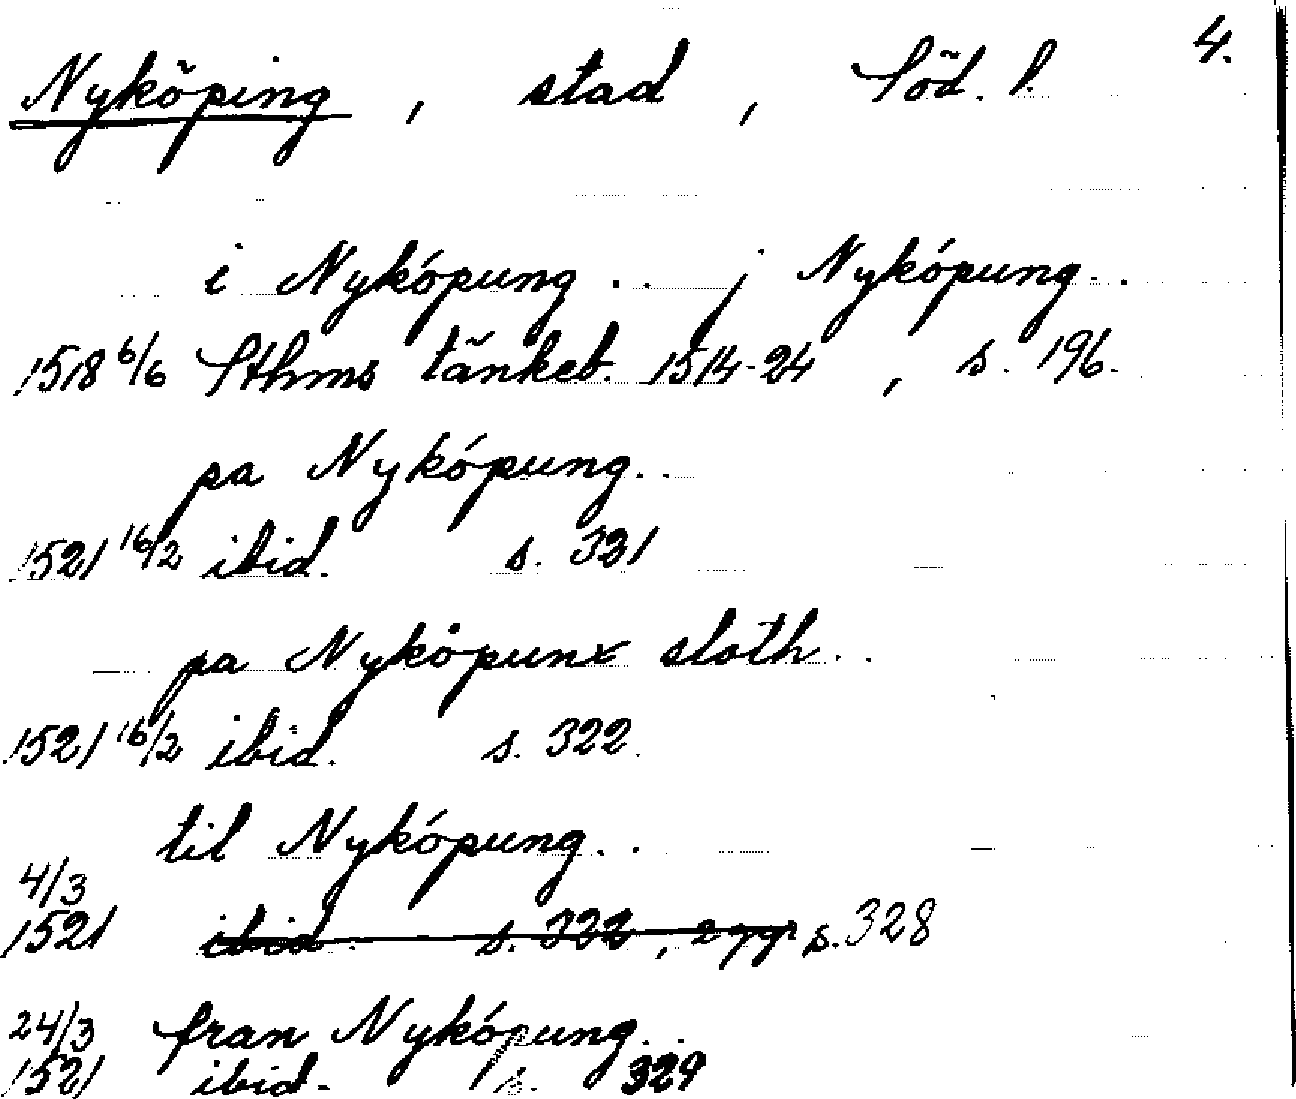 4.
Nyköping, stad, Söd. l.
i Nykópung.. j Nykópung..
1518 6/6 Sthms tänkeb. 1514-24, s. 196.
pa Nykópung..
1521 16/2 ibid. s. 321
pa Nykópunx sloth..
1521 16/2 ibid. s. 322.
til Nykópung..
4/3
1521 ibid. s. 322, 2 ggr s. 328
24/3 fran Nykópung..
1521 ibid. s. 329